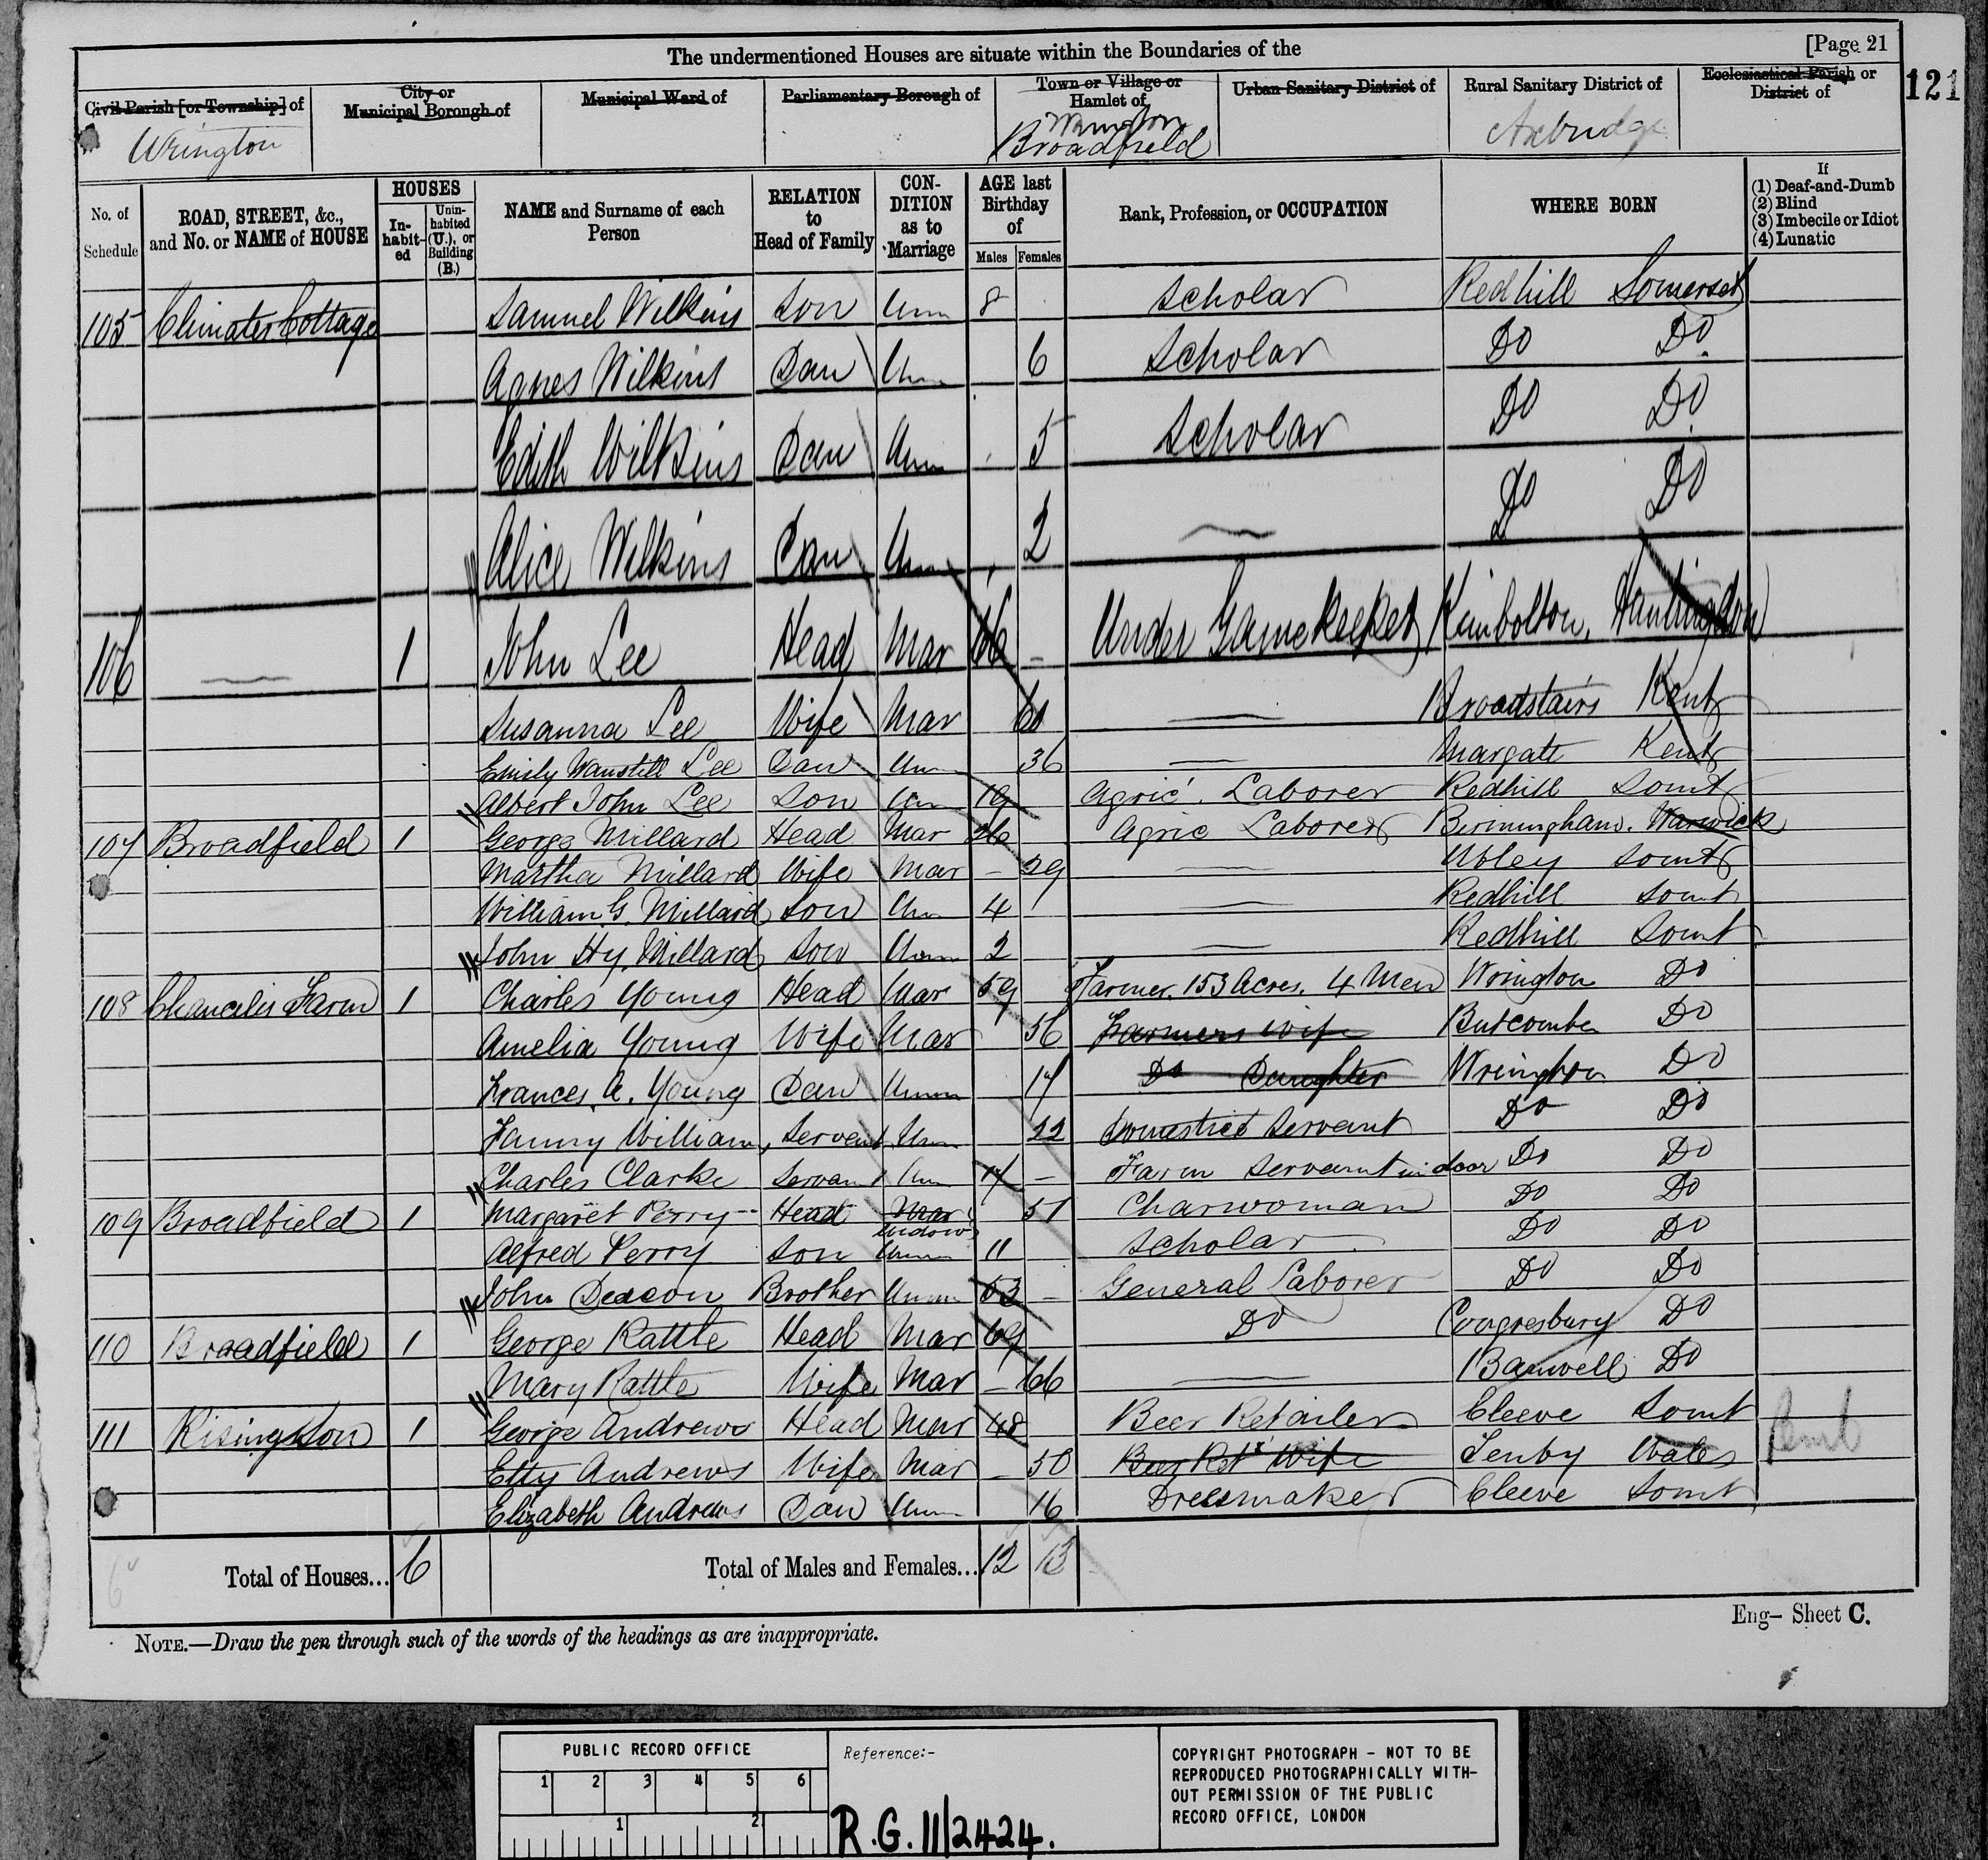 The undermentioned Houses are situate within the Boundaries of the
[Page 21
121
Civil Parish [or Township] of
City or Municipal Borough of
Municipal Ward of
Parliamentary Borough of
Town or Village or Hamlet of
Urban Sanitary District of
Rural Sanitary District of
Ecclesiastical Parish or District of
Wrington
Wrington
Broadfield
Axbridge
No. of Schedule
ROAD, STREET, &c., and No. or NAME of HOUSE
HOUSES
In-habit-ed
Unin-habited (U.), or Building (B.)
NAME and Surname of each Person
RELATION to Head of Family
CON-DITION as to Marriage
AGE last Birthday of
Males
Females
Rank, Profession, or OCCUPATION
WHERE BORN
If
(1) Deaf-and-Dumb
(2) Blind
(3) Imbecile or Idiot
(4) Lunatic
105 Cottage Samuel Wilkins Son Unm 8 Scholar Redhill Somerset
Agnes Wilkins Dau Unm 6 Scholar Do Do
Edith Wilkins Dau Unm 5 Scholar Do Do
Alice Wilkins Dau Unm 2 — Do Do
106 — 1 John Lee Head Mar 66 – Under Gamekeeper Kimbolton, Huntingdon
Susanna Lee Wife Mar 60 — Broadstairs Kent
Emily Lee Dau Un 36 — Margate Kent
Albert John Lee Son Un 19 Agric. Laborer Redhill Somt
107 Broadfield 1 George Millard Head Mar 26 Agric Laborer Birmingham. Warwick
Martha Millard Wife Mar – 29 — Ubley Somt
William G. Millard Son Un 4 — Redhill Somt
John Hy. Millard Son Unm 2 — Redhill Somt
108 Farm 1 Charles Young Head Mar 59 Farmer. 153 Acres. 4 Men Wrington Do
Amelia Young Wife Mar 56 Farmers Wife Butcombe Do
Frances A. Young Dau Unm 17 Do Daughter Wrington Do
Fanny Williams, Servant Unm 22 Domestic Servant Do Do
Charles Clarke Servant Un 17 – Farm Servant indoor Do Do
109 Broadfield 1 Margaret Perry Head Mar Widow 51 Charwoman Do Do
Alfred Perry Son Unm 11 Scholar Do Do
John Deacon Brother Unm 53 – General Laborer Do Do
110 Broadfield 1 George Rattle Head Mar 69 Do Congresbury Do
Mary Rattle Wife Mar – 66 — Banwell Do
111 Rising Son 1 George Andrews Head Mar 48 Beer Retailer Cleeve Somt
Etty Andrews Wife Mar – 50 Beer Retr Wife Tenby Wales Pemb
Elizabeth Andrews Dau Unm 16 Dressmaker Cleeve Somt
6 Total of Houses... 6 Total of Males and Females... 12 13
Eng– Sheet C.
NOTE.—Draw the pen through such of the words of the headings as are inappropriate.
PUBLIC RECORD OFFICE
1 2 3 4 5 6
1 2
Reference:-
R.G. 11/2424.
COPYRIGHT PHOTOGRAPH – NOT TO BE
REPRODUCED PHOTOGRAPHICALLY WITH-
OUT PERMISSION OF THE PUBLIC
RECORD OFFICE, LONDON